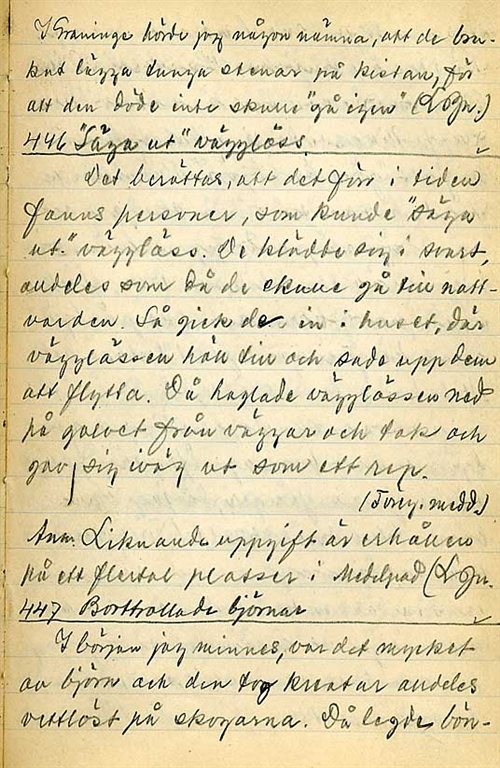 I Graninge hörde jag någon nämna, att de bru-
kat lägga tunga stenar på kistan, för
att den döde inte skulle "gå igen" (
446 "Säga ut" vägglöss.
Det berättas, att det förr i tiden
fanns personer, som kunde "säga
ut" vägglöss. De klädde sig i svart,
andeles som då de skulle gå till natt-
varden. Så gick de in i huset, där
vägglössen höll till och sade upp dem
att flytta. Då haglade vägglössen ned
på golvet från väggar och tak och
gav sig iväg ut som ett rep.
(Föreg. medd.)
Anm. Liknande uppgift är erhållen
på ett flertal platser i Medelpad (
447 Borttrollade björnar
I början jag minnes, var det mycket
av björn och den tog kreatur andeles
vettlöst på skogarna. Då lagde bön-